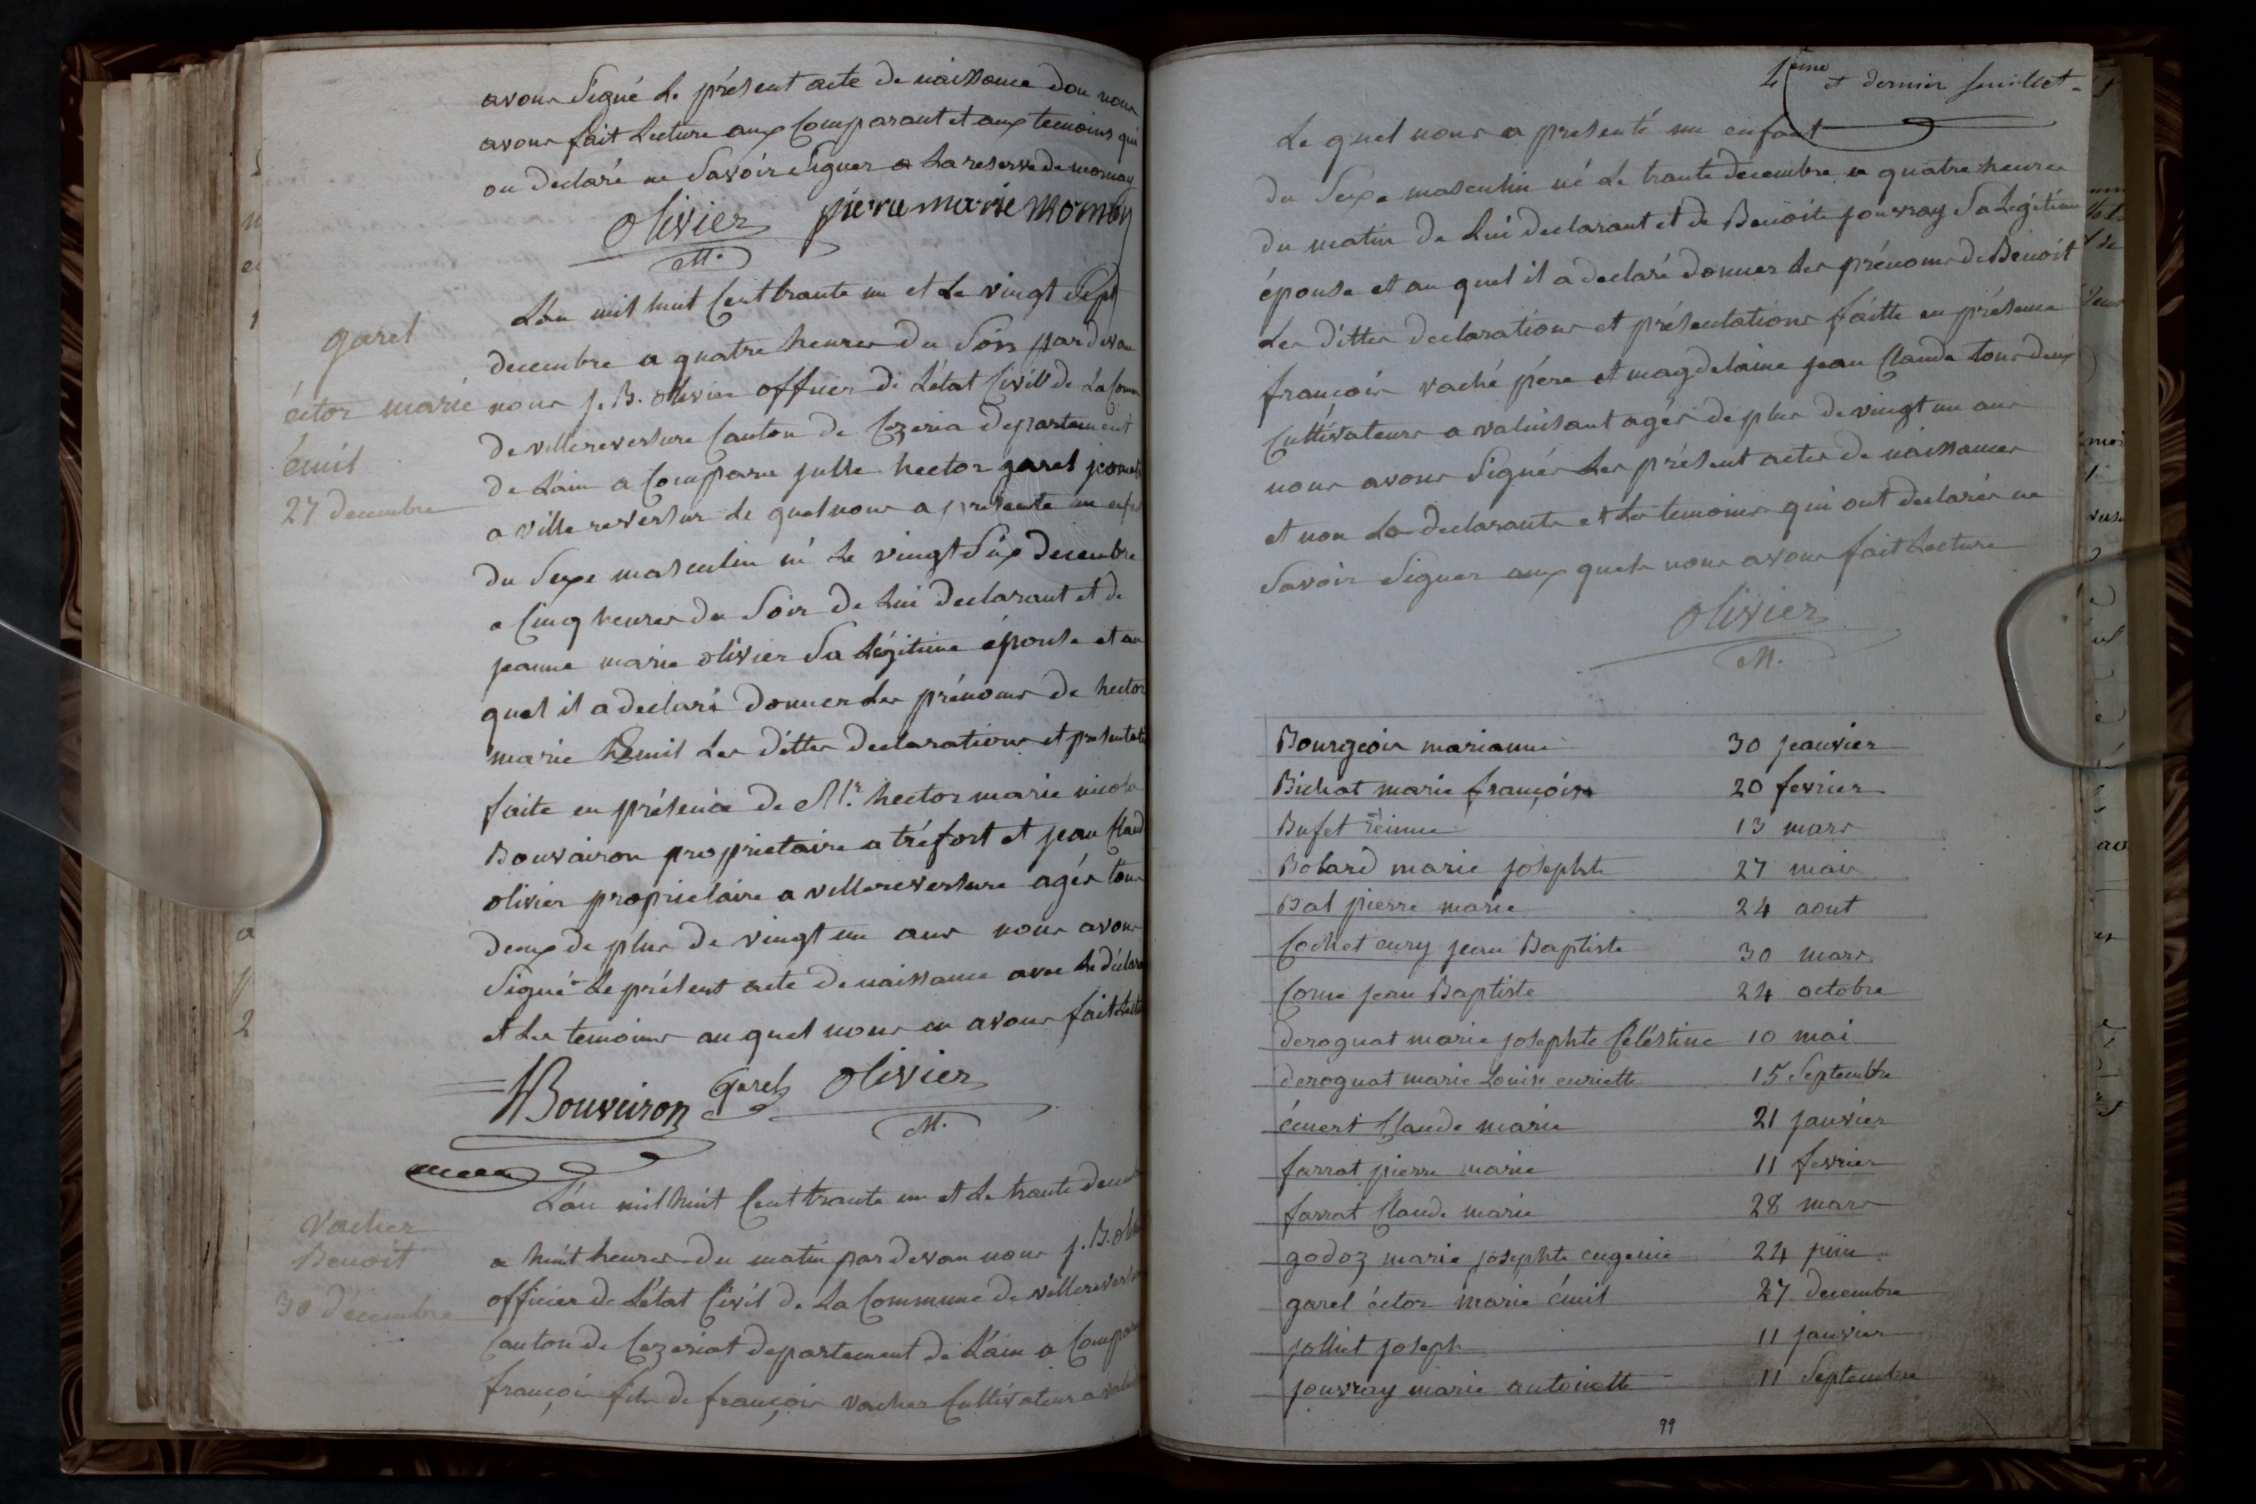 avons Signé Le présent acte de naissance don nous
avons fait Lecture aux Comparant et aux temoins qui
on declaré ne Savoir Signer a La reserve de mornay
Olivier pierre marie Mornay
M.
garel
éctor marié
émil
27 decembre
L'an mil huit Cent trante un et Le vingt Sept
decembre a quatre heures du Soir par devan
nous J. B. olivier officier de L'état Civill de La Comm
de villereversure Canton de Cezeria departement
de Lain a Comparu julle hector garel
a ville reversur Le quel nous a presenté un enfa
du Sexe masculin né Le vingt Six decembre
a Cinq heures du Soir de Lui declarant et de
jeanne marie olivier Sa Légitime épouse et au
quel il a declaré donner Les prénoms de hector
marie hemil Les ditter declarations et presentati
faite en présence de Mr. hector marie nicola
Bouvairon proprietaire a tréfort et jean Claud
olivier proprietaire a villereversure agés tous
deux de plus de vingt un ans nous avons
Signé Le présent acte de naissance avec Le déclara
et Les temoins au quel nous en avons fait Lectu
HBouveiron Garel Olivier
M.
Vacher
Benoit
30 décembre
L'an mil huit Cent trante un et Le trante decem
a huit heures du matin par devan nous J. B. oli
officier de L'état Civil de La Commune de villerevers
Canton de Cezeriat departement de L'ain a Compar
françois fils de françois vacher Cultivateur a
4eme et dernier feuillet
Le quel nous a presenté un enfant
du Sexe masculin né Le trante decembre a quatre heures
du matin de Lui declarant et de Benoite jouvray Sa Légitime
épouse et au quel il a declaré donner Les prénoms de Benoit
Les ditter declarations et présentations faitte en présence
françois vaché pére et magdelaine jean Claude tous deux
Cultivateurs a valuisant agés de plus de vingt un ans
nous avons Signés Les présent actes de naissances
et non Le declarants et Les temoins qui ont declarés ne
Savoir Signer aux quels nous avons fait Lecture
Olivier
M.
Bourgeois marianne 30 jeanvier
Bichat marie françoise 20 fevrier
Bufet 13 mars
Bolard marie josephte 27 mais
Bal pierre marie 24 aout
Cochet eury jean Baptiste 30 mars
Corne jean Baptiste 24 octobre
deroguat marie josephte Celéstine 10 mai
deroguat marie Louise enriette 15 Septembre
émert Claude marie 21 janvier
farrat pierre marie 11 fevrier
farrat Claude marie 28 mars
godoz marie josephte eugenie 24 juin
garel éctor marie émil 27 decembre
jolliet joseph 11 janvier
jouvray marie antoinette 11 Septembre
99